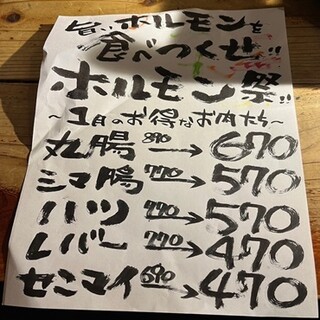 旨いホルモンを
食べつくせ!!
ホルモン祭!!
~1月のお得なお肉たち~
丸腸 890→670
シマ腸 770→570
ハツ 770→570
レバー 770→470
センマイ 690→470